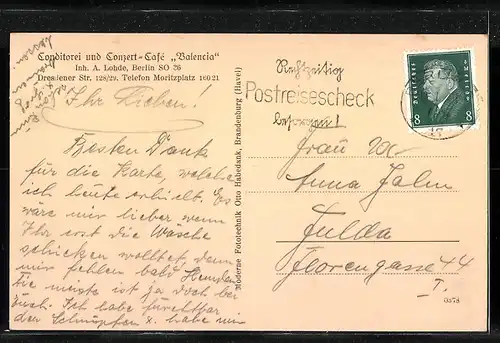 Conditorei und Conzert-Café „Valencia"
Inh. A. Lohde, Berlin SO 26
Dresdener Str. 128/29. Telefon Moritzplatz 160 21
Ihr Lieben!
Besten Dank
für die Karte, welche
ich heute erhielt. Es
wäre mir lieber wenn
Ihr erst die Wäsche
schicken wolltet, denn
mir fehlen bald Hemden.
Die meiste ist ja doch bei
Euch. Ich habe furchtbar
der Schnupfen x. habe mir
Moderne Fototechnik Otto Habedank, Brandenburg (Havel)
Rechtzeitig
Postreisescheck
besorgen!
Deutsches Reich
8 8
Frau
Anna
Fulda
Florengasse 44
I.
0378